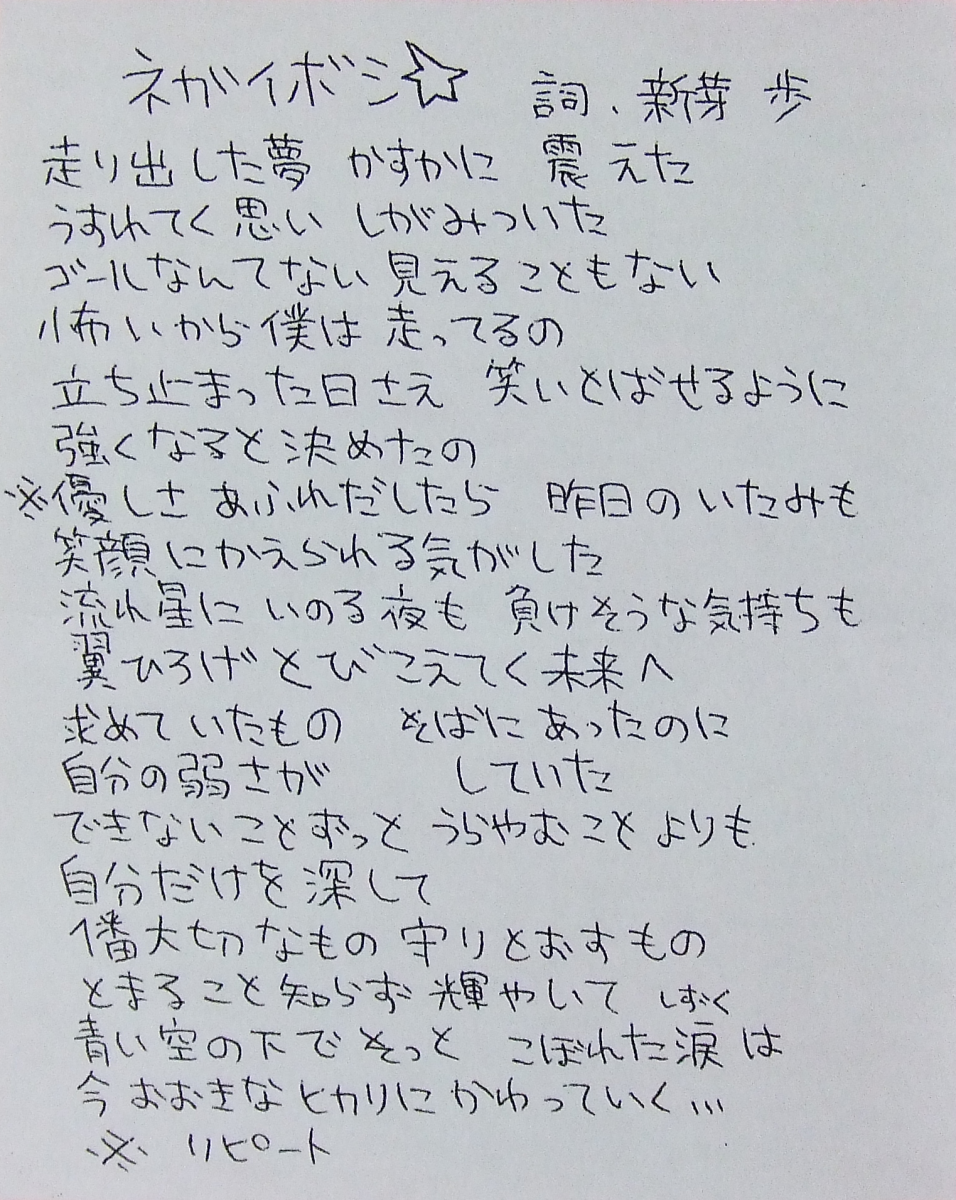 ネガイボシ☆ 詞.新芽 歩
走り出した夢 かすかに 震えた
うすれてく思い しがみついた
ゴールなんてない 見えることもない
怖いから僕は 走ってるの
立ち止まった日さえ 笑いとばせるように
強くなると決めたの
※優しさ あふれだしたら 昨日のいたみも
笑顔にかえられる気がした
流れ星に いのる夜も 負けそうな気持ちも
翼ひろげ とびこえてく未来へ
求めていたもの そばにあったのに
自分の弱さが していた
できないことずっと うらやむことよりも
自分だけを 深して
大切なもの 守りとおすもの
とまること知らず 輝やいて しずく
青い空の下で そっと こぼれた涙は
今 おおきなヒカリに かわっていく...
※ リピート